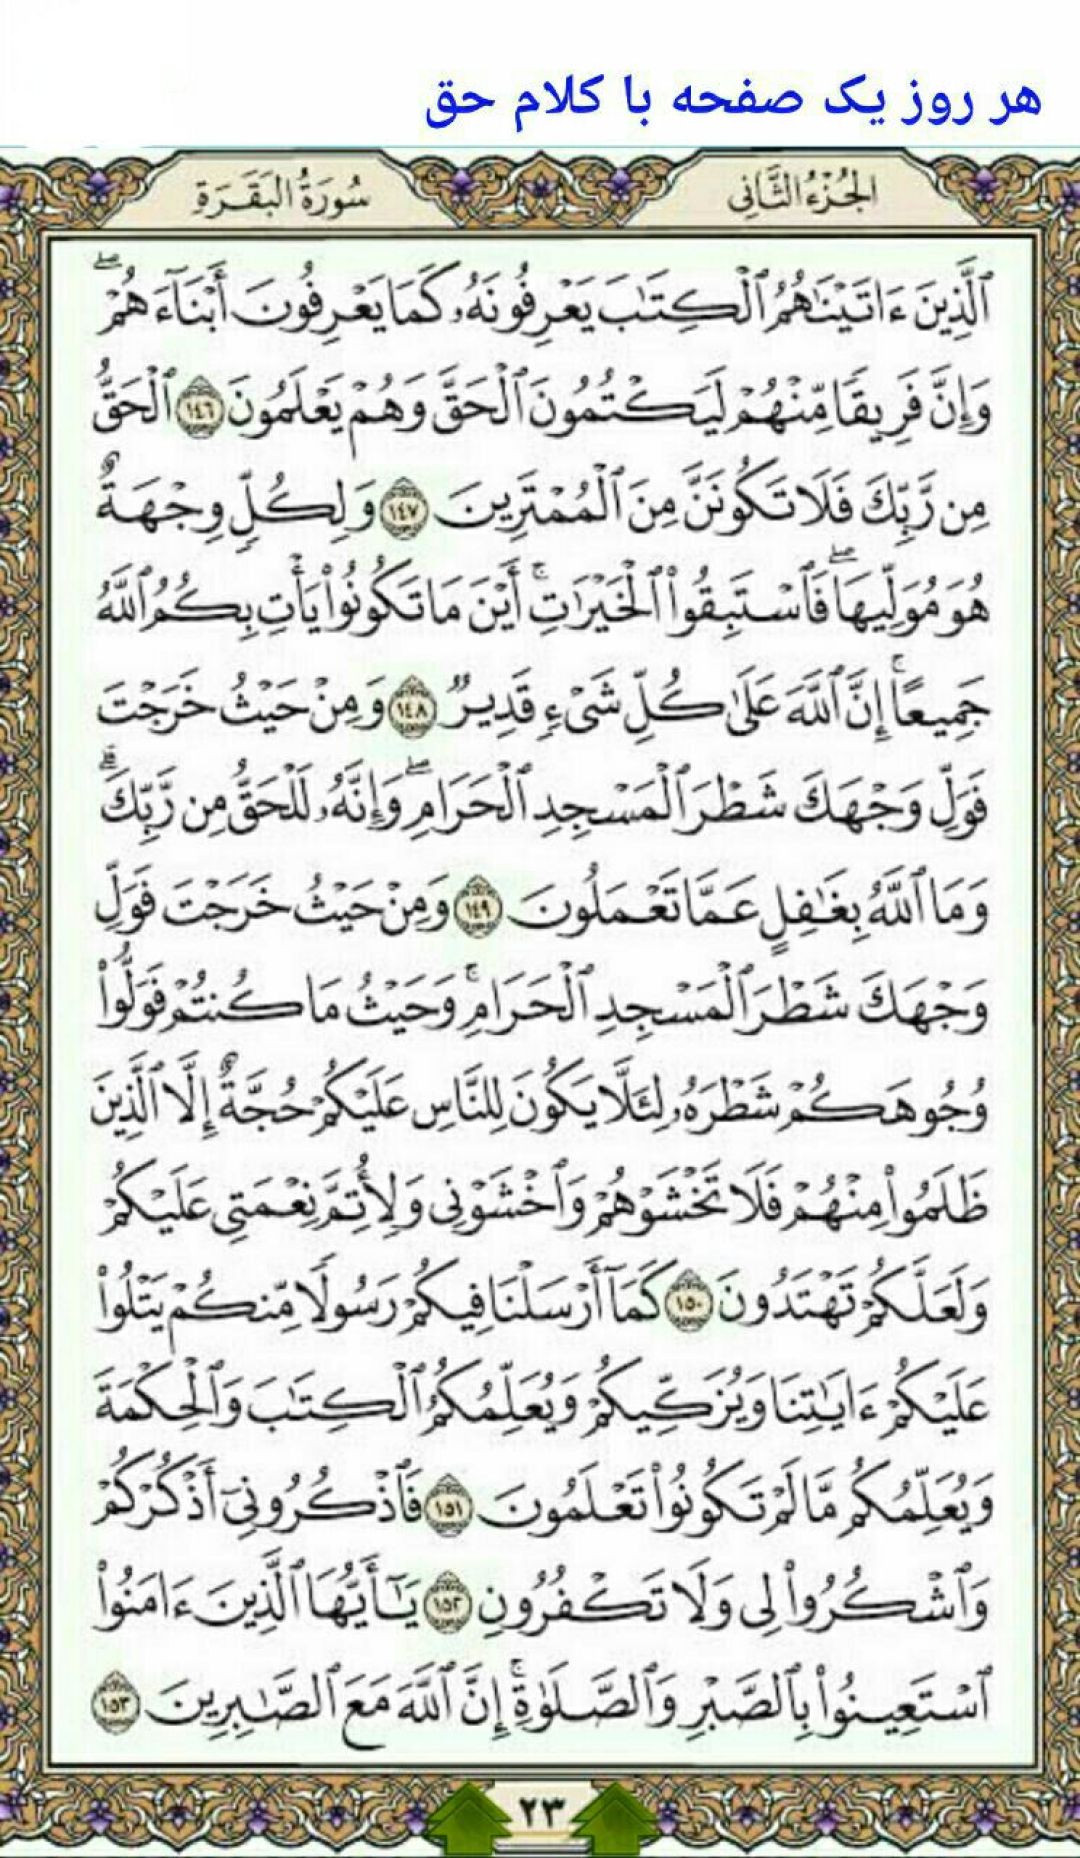 هر روز یک صفحه با کلام حق
الجُزءُ الثَّانِی
سُورَةُ البَقَرَةِ
ٱلَّذِينَ ءَاتَيْنَٰهُمُ ٱلْكِتَٰبَ يَعْرِفُونَهُۥ كَمَا يَعْرِفُونَ أَبْنَآءَهُمْ ۖ
وَإِنَّ فَرِيقًا مِّنْهُمْ لَيَكْتُمُونَ ٱلْحَقَّ وَهُمْ يَعْلَمُونَ ١٤٦ ٱلْحَقُّ
مِن رَّبِّكَ فَلَا تَكُونَنَّ مِنَ ٱلْمُمْتَرِينَ ١٤٧ وَلِكُلٍّ وِجْهَةٌ
هُوَ مُوَلِّيهَا ۖ فَٱسْتَبِقُوا۟ ٱلْخَيْرَٰتِ ۚ أَيْنَ مَا تَكُونُوا۟ يَأْتِ بِكُمُ ٱللَّهُ
جَمِيعًا ۚ إِنَّ ٱللَّهَ عَلَىٰ كُلِّ شَىْءٍ قَدِيرٌ ١٤٨ وَمِنْ حَيْثُ خَرَجْتَ
فَوَلِّ وَجْهَكَ شَطْرَ ٱلْمَسْجِدِ ٱلْحَرَامِ ۖ وَإِنَّهُۥ لَلْحَقُّ مِن رَّبِّكَ ۗ
وَمَا ٱللَّهُ بِغَٰفِلٍ عَمَّا تَعْمَلُونَ ١٤٩ وَمِنْ حَيْثُ خَرَجْتَ فَوَلِّ
وَجْهَكَ شَطْرَ ٱلْمَسْجِدِ ٱلْحَرَامِ ۚ وَحَيْثُ مَا كُنتُمْ فَوَلُّوا۟
وُجُوهَكُمْ شَطْرَهُۥ لِئَلَّا يَكُونَ لِلنَّاسِ عَلَيْكُمْ حُجَّةٌ إِلَّا ٱلَّذِينَ
ظَلَمُوا۟ مِنْهُمْ فَلَا تَخْشَوْهُمْ وَٱخْشَوْنِى وَلِأُتِمَّ نِعْمَتِى عَلَيْكُمْ
وَلَعَلَّكُمْ تَهْتَدُونَ ١٥٠ كَمَآ أَرْسَلْنَا فِيكُمْ رَسُولًا مِّنكُمْ يَتْلُوا۟
عَلَيْكُمْ ءَايَٰتِنَا وَيُزَكِّيكُمْ وَيُعَلِّمُكُمُ ٱلْكِتَٰبَ وَٱلْحِكْمَةَ
وَيُعَلِّمُكُم مَّا لَمْ تَكُونُوا۟ تَعْلَمُونَ ١٥١ فَٱذْكُرُونِىٓ أَذْكُرْكُمْ
وَٱشْكُرُوا۟ لِى وَلَا تَكْفُرُونِ ١٥٢ يَٰٓأَيُّهَا ٱلَّذِينَ ءَامَنُوا۟
ٱسْتَعِينُوا۟ بِٱلصَّبْرِ وَٱلصَّلَوٰةِ ۚ إِنَّ ٱللَّهَ مَعَ ٱلصَّٰبِرِينَ ١٥٣
٢٣